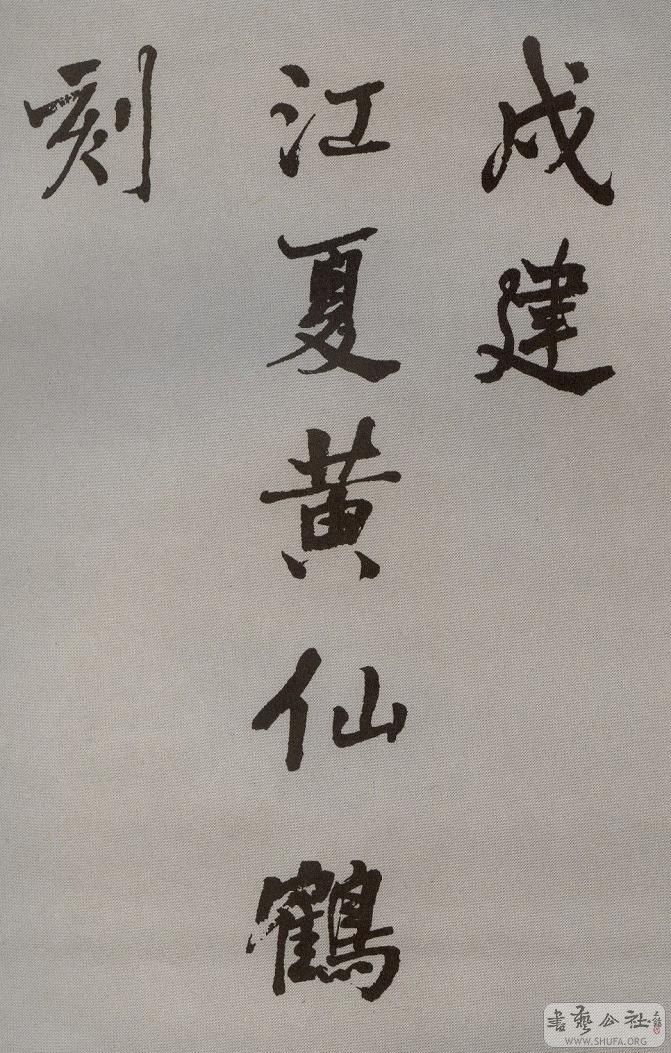 戌建
江夏黄仙鶴
刻
書藝公社
WWW.SHUFA.ORG